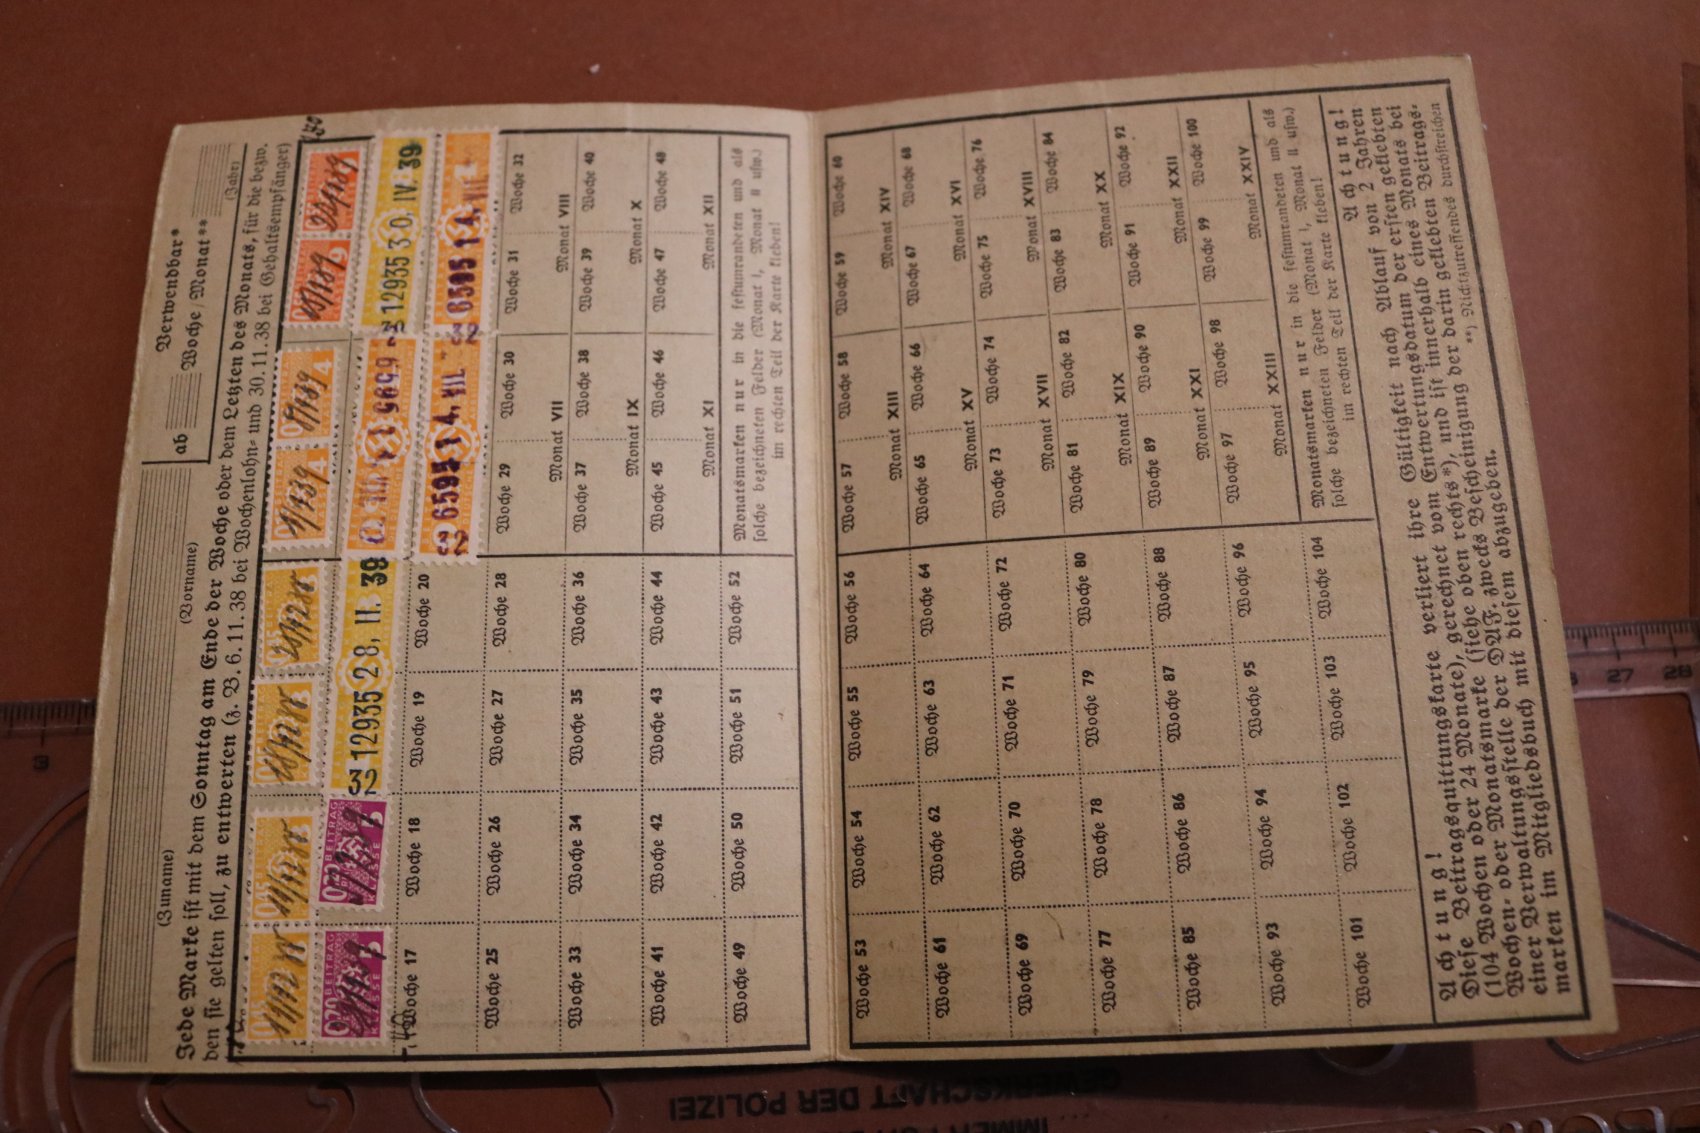 Verwendbar*
ab Woche / Monat**
(Zuname) (Vorname) (Jahr)
Jede Marke ist mit dem Sonntag am Ende der Woche oder dem Letzten des Monats, für die bezw.
den sie gelten soll, zu entwerten (z. B. 6. 11. 38 bei Wochenlohn- und 30. 11. 38 bei Gehaltsempfänger)
32 12935 28. II. 39
12935 30. IV. 39
6595 14. VII.
6595 14. VII.
BEITRAG
KLASSE
Woche 17 Woche 18 Woche 19 Woche 20
Woche 25 Woche 26 Woche 27 Woche 28 Woche 29 Woche 30 Woche 31 Woche 32
Monat VII Monat VIII
Woche 33 Woche 34 Woche 35 Woche 36 Woche 37 Woche 38 Woche 39 Woche 40
Monat IX Monat X
Woche 41 Woche 42 Woche 43 Woche 44 Woche 45 Woche 46 Woche 47 Woche 48
Monat XI Monat XII
Woche 49 Woche 50 Woche 51 Woche 52
Monatsmarken nur in die festumrandeten und als
solche bezeichneten Felder (Monat I, Monat II usw.)
im rechten Teil der Karte kleben!
Woche 53 Woche 54 Woche 55 Woche 56 Woche 57 Woche 58 Woche 59 Woche 60
Monat XIII Monat XIV
Woche 61 Woche 62 Woche 63 Woche 64 Woche 65 Woche 66 Woche 67 Woche 68
Monat XV Monat XVI
Woche 69 Woche 70 Woche 71 Woche 72 Woche 73 Woche 74 Woche 75 Woche 76
Monat XVII Monat XVIII
Woche 77 Woche 78 Woche 79 Woche 80 Woche 81 Woche 82 Woche 83 Woche 84
Monat XIX Monat XX
Woche 85 Woche 86 Woche 87 Woche 88 Woche 89 Woche 90 Woche 91 Woche 92
Monat XXI Monat XXII
Woche 93 Woche 94 Woche 95 Woche 96 Woche 97 Woche 98 Woche 99 Woche 100
Monat XXIII Monat XXIV
Woche 101 Woche 102 Woche 103 Woche 104
Monatsmarken nur in die festumrandeten und als
solche bezeichneten Felder (Monat I, Monat II usw.)
im rechten Teil der Karte kleben!
Achtung! Achtung!
Diese Beitragsquittungskarte verliert ihre Gültigkeit nach Ablauf von 2 Jahren
(104 Wochen oder 24 Monate), gerechnet vom Entwertungsdatum der ersten geklebten
Wochen- oder Monatsmarke (siehe oben rechts*), und ist innerhalb eines Monats bei
einer Verwaltungsstelle der DAF. zwecks Bescheinigung der darin geklebten Beitrags-
marken im Mitgliedsbuch mit diesem abzugeben.
**) Nichtzutreffendes durchstreichen
GEWERKSCHAFT DER POLIZEI
3
27 28